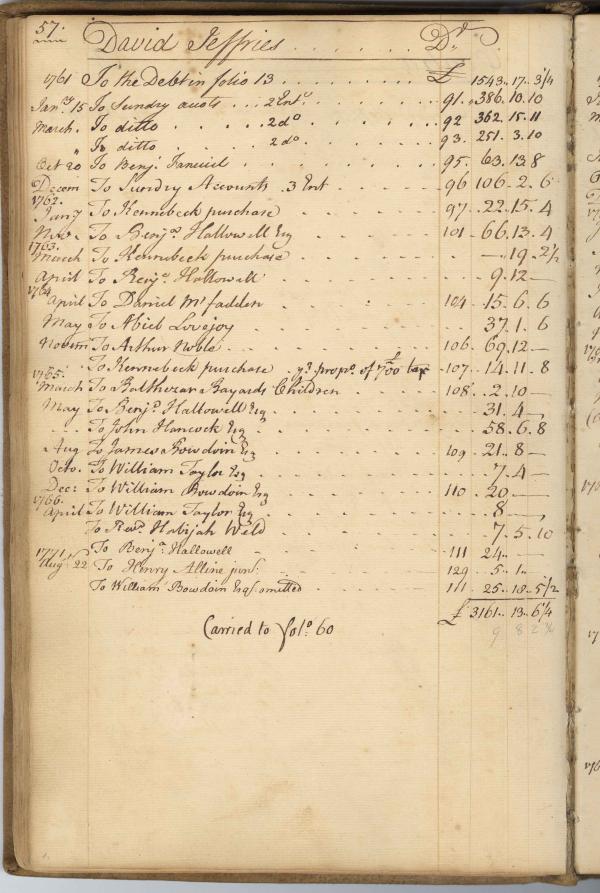 57.
David Jeffries . . . . . . Dr.
1761 To the Debt in folio 13 . . . . . . . . £ 1543..17..3¼
Janry 15 To Sundry accots . . . 2 Ents . . . . . 91. 386.10.10
March. To ditto . . . . . 2 do . . . . . 92 362.15.11
" To ditto . . . . . 2 do . . . . . 93. 251.3.10
Oct 20 To Benj. Faneuil . . . . . . . 95. 63.13.8
Decem To Sundry Accounts . 3 Ent . . . . . 96 106.2.6
1762.
Jany To Kennebeck purchase . . . . . . 97. .22.15.4
Novr. To Benja Hallowell Esq . . . . . 101 .66.13.4
1763.
March To Kennebeck purchase . . . . . . —.19.2½
April To Benja. Hallowell . . . . . . 9.12—
1764
April To Daniel Mcfadden . . . . . . 104 .15.6.6
May To Abiel Lovejoy . . . . . . 37.1.6
Novem To Arthur Noble . . . . . . 106. 69.12—
To Kennebeck purchase . yr. propn. of £700 tax . 107. .14.11.8
1765.
March To Balthezar Bayards Children . . . . 108. .2.10—
May To Benja Hallowell Esq . . . . . 31.4—
. . . To John Hancock Esq . . . . . 58.6.8
Aug To James Bowdoin Esq . . . . . 109 .21.8—
Octo. To William Taylor Esq . . . . . .7.4—
Dec: To William Bowdoin Esq . . . . . 110 .20.—
1766.
April To William Taylor Esq . . . . . 8—
To Revd. Habijah Weld . . . . . 7.5.10
To Benja. Hallowell . . . . . 111 24..—
1771
Aug 22 To Henry Alline junr. . . . . . 129 .5.1..
To William Bowdoin Esq. omitted . . . . . 111 25..18..5½
£ 3161..13..6¼
9 8 2
Carried to folo. 60